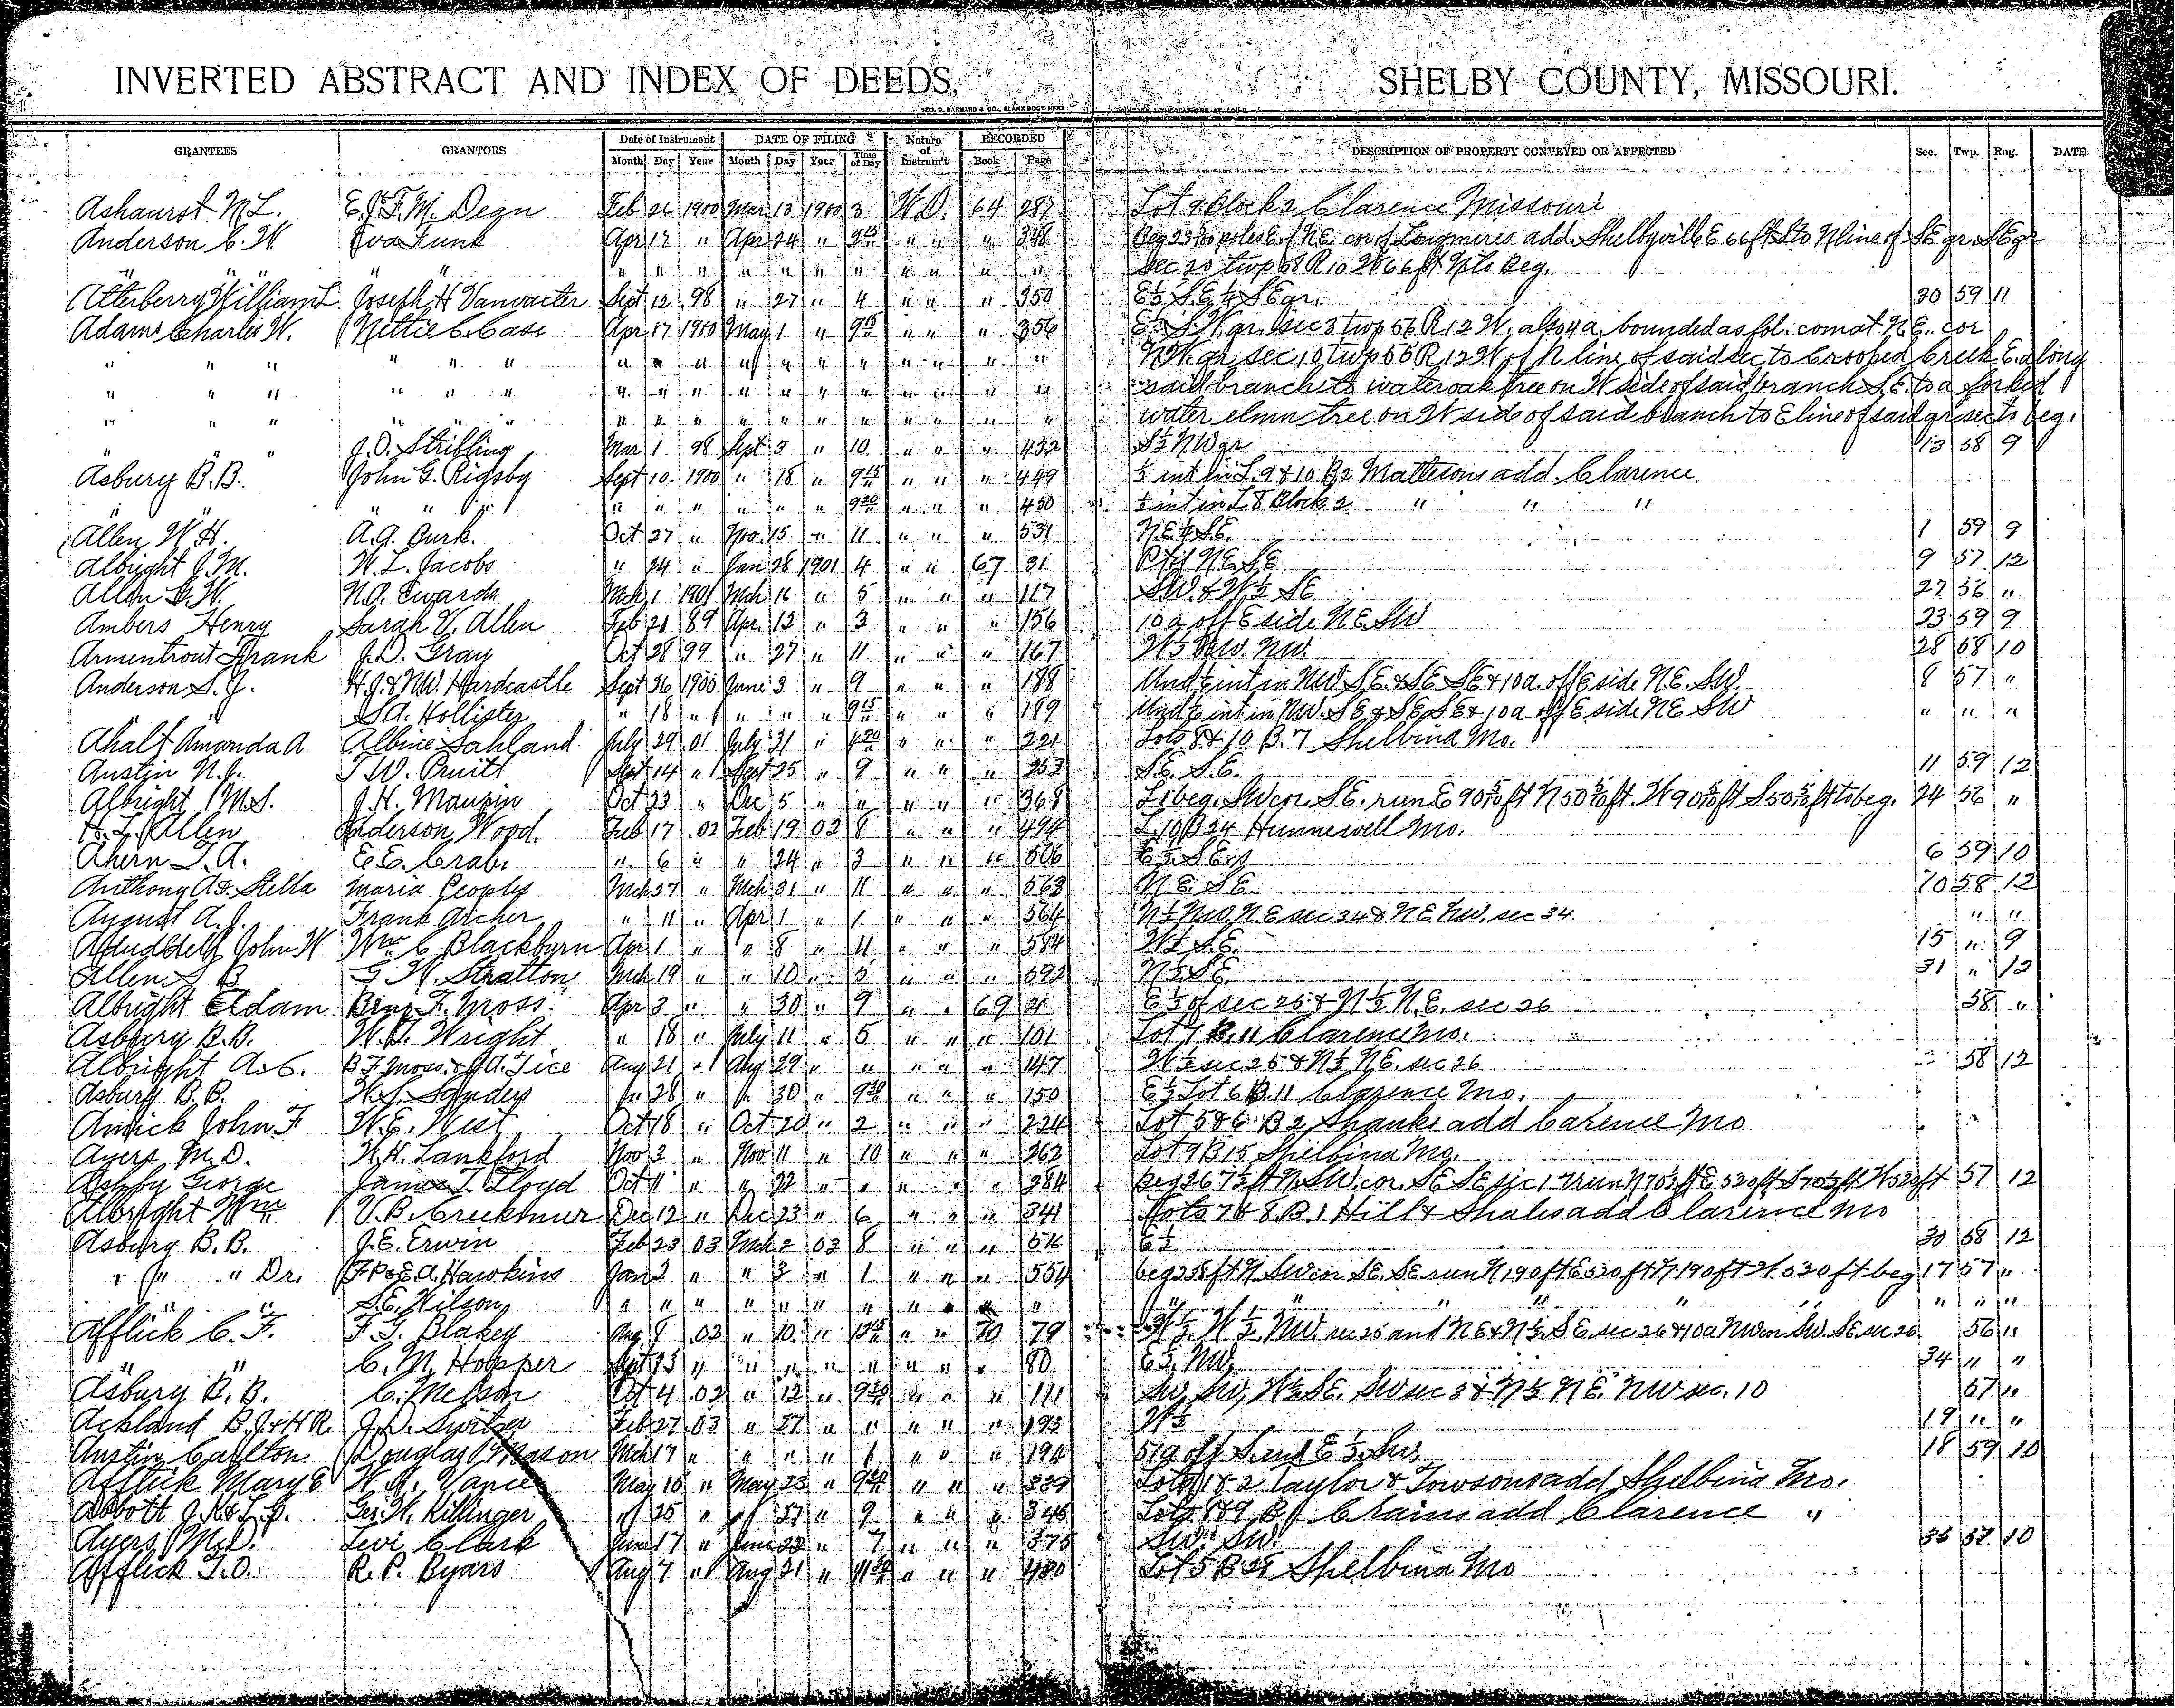 INVERTED ABSTRACT AND INDEX OF DEEDS, SHELBY COUNTY, MISSOURI.
GEO. D. BARNARD & CO., BLANK BOOK MFRS
GRANTEES GRANTORS Date of Instrument DATE OF FILING Nature of Instrum't RECORDED DESCRIPTION OF PROPERTY CONVEYED OR AFFECTED Sec. Twp. Rng. DATE
Month Day Year Month Day Year Time of Day Book Page
Ashaurst N.L. E. & F.M. Degn Feb 26 1900 Mar 13 1900 3 W.D. 64 287 Lot 9 Block 2 Clarence Missouri
Anderson C.W Eva Funk Apr 17 " Apr 24 " 9 15 " " " 348 N.E. cor of Longmires add. Shelbyville E 66 ft S to N line of SE qr SE qr
" " " " " " " " " " " " " " " " sec 20 twp 58 R 10 W 66 ft N to Beg.
Atterberry William T Joseph H Vanvacter Sept 12 98 " 27 " 4 " " " 350 E½ S.E ¼ SE qr. 30 59 11
Adams Charles W. Nettie C. Case Apr 17 1900 May 1 " 9 15 " " " 356 S.W. qr. sec 3 twp 56 R 12 W. also 4 a. bounded as fol: com at N.E. cor
" " " " " " " " " " " " " " " N.W. qr sec. 10 twp 56 R 12 W of N line of said sec to Crooked Creek E. along
" " " " " " " " " " " " " " " said branch to water oak tree on W side of said branch S.E. to a forked
" " " " " " " " " " " " " " " water elm tree on W side of said branch to E line of said qr sec to beg.
" " J.D. Stribling Mar 1 98 Sept 3 " 10 " " " 432 S½ NW qr 13 58 9
Asbury B.B. John G. Rigsby Sept 10 1900 " 18 " 9 15 " " " 449 ½ int in L. 9 & 10 B 2 Mattisons add. Clarence
" " " " " " " " " " " 9 20 " " " 450 ½ int in L 8 Block 2 " " "
Allen W.H. A.G. Burk. Oct 27 " Nov. 15 " 11 " " " 531 N.E. & S.E. 1 59 9
Albright J.M. W.L. Jacobs " 24 " Jan 28 1901 4 " " 67 31 N.E. SE 9 57 12
Allen G.W. N.A. Edwards Mch 1 1901 Mch 16 " 5 " " " 117 SW. & W½ SE 27 56 "
Ambers Henry Sarah V. Allen Feb 21 89 Apr. 13 " 3 " " " 156 10 a off E side N.E. SW 23 59 9
Armentrout Frank J.D. Gray Oct 28 99 " 27 " 11 " " " 167 W½ NW. 28 58 10
Anderson S.J. H.J. & N.W. Hardcastle Sept 26 1900 June 3 " 9 " " " 188 Und ½ int in NW S.E. & SE SE & 10 a. off E side N.E. SW. 8 57 "
" S.A. Hollister " 18 " " " " 9 15 " " " 189 Und ½ int in NW. S.E & SE SE & 10 a off E side N.E SW " " "
Ahalt Amanda A Albine Sahland July 29 01 July 31 " 4 20 " " " 221 Lots 8 & 10 B. 7 Shelbina Mo.
Austin N.J. T.W. Pruitt Sept 14 " Sept 25 " 9 " " " 253 S.E. S.E. 11 59 12
Albright M.S. J.H. Maupin Oct 23 " Dec 5 " " " " " 368 L 1 beg. SW cor. S.E. run E 90 ft N 50 ft. W 90 ft S 50 ft to beg. 24 56 "
H.L. Allen Anderson Wood. Feb 17 02 Feb 19 02 8 " " " 494 L 10 B 24 Hunnewell Mo.
Ahern T.A. E.E. Crabe " 6 " " 24 " 3 " " " 506 E½ S.E. 6 59 10
Anthony A. & Stella Maria Peoples Mch 27 " Mch 31 " 11 " " " 563 N.E. S.E. 10 58 12
August A.J. Frank Archer " 11 " Apr 1 " 1 " " " 564 N½ NW. N.E sec 34 & N.E NW. sec 34 " "
John W Wm C. Blackburn Apr 1 " " 8 " 11 " " " 584 W½ S.E. 15 " 9
Allen S B G.W. Stratton Mch 19 " " 10 " 3 " " " 592 N½ S.E. 31 " 12
Albright Adam Benj F. Moss Apr 3 " " 30 " 9 " " 69 2 E½ of sec 25 & N½ N.E. sec 26 58 "
Asbury B.B. W.J. Wright " 18 " July 11 " 5 " " " 101 Lot 7 B. 11 Clarence Mo.
Albright A.C. B.F. Moss & J.A. Tice Aug 21 " Aug 29 " " " " " 147 W½ sec 25 & N½ N.E. sec 26 58 12
Asbury B.B. W.S. Sandys " 28 " " 30 " 9 30 " " " 150 E½ Lot 6 B. 11 Clarence Mo.
Amick John F W.E. West Oct 18 " Oct 20 " 2 " " " 224 Lot 5 & 6 B 2 Shanks add Carence Mo
Ayers M.D. W.H. Lankford Nov 3 " Nov 11 " 10 " " " 262 Lot 9 B 15 Shelbina Mo.
Ashby George James T. Lloyd Oct 11 " " 22 " " " " " 284 SW cor. SE SE sec 17 run N 70½ ft E 520 ft S 70½ ft W 520 ft 57 12
Albright Wm V.B. Creekmur Dec 12 " Dec 23 " 6 " " " 341 Lots 7 & 8 B. 1 Hill & Shales add Clarence Mo
Asbury B.B. J.E. Erwin Feb 23 03 Mch 2 03 8 " " " 514 E½ 30 58 12
" " " Dr. F.P. & E.A. Hawkins Jan 2 " " 3 " 1 " " " 554 beg 258 ft N SW cor SE. SE run N 190 ft E 520 ft N. 190 ft W. 530 ft beg 17 57 "
" " S.E. Wilson " " " " " " " " " " " " " " " " " " " "
Afflick C.F. F.G. Blakey Aug 8 02 " 10 " " " 70 79 W½ W½ NW. sec 25 and N.E & N½ S.E. sec 26 & 10 a NW cor SW. SE. sec 26 56 "
" " C.M. Hopper Sept 13 " " " " " " " " 80 E½ NW. 34 " "
Asbury B.B. C. Melson Oct 4 02 " 12 " 9 30 " " " 111 SW. SW, W½ SE. SW sec 3 & N½ N.E. NW sec. 10 57 "
Ackland B.J. & H R. J.D. Switzer Feb 27 03 " 27 " " " " " 193 W½ 19 " "
Austin Carlton Douglas Mason Mch 17 " " " " 1 " " " 194 51 a off S. end E½ SW. 18 59 10
Afflick Mary E W.A. Vance May 16 " May 23 " 9 30 " " " Lots 1 & 2 Taylor & Towsons add Shelbina Mo.
Abbott J.N. & L.G. Geo. W. Killinger " 25 " " 27 " 9 " " " 345 Lots 8 & 9 B 1 Crains add Clarence "
Ayers M.D. Levi Clark June 17 " June 22 " 7 " " " 375 SW. SW. 36 57 10
Afflick T.O. R.P. Byars Aug 7 " Aug 21 " " " " 480 Lot 5 B 28 Shelbina Mo